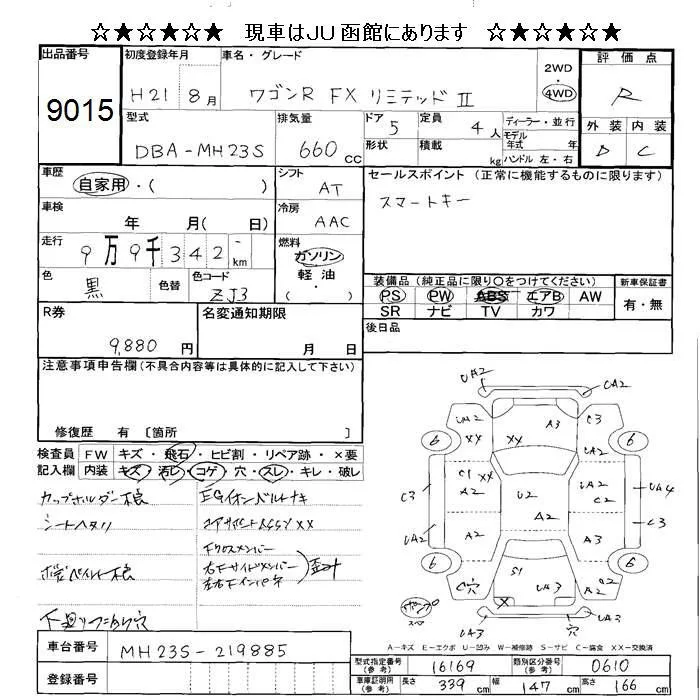 ☆★☆★☆★ 現車はJU函館にあります ☆★☆★☆★
出品番号
9015
初度登録年月
H21 8月
車名・グレード
ワゴンR FX リミテッド II
2WD
4WD
評価点
R
型式
DBA-MH23S
排気量
660cc
ドア 5
形状
定員 4人
積載 kg
ディーラー・並行
モデル年式 年式
ハンドル 左・右
外装 内装
D C
車歴
自家用・( )
シフト
AT
セールスポイント (正常に機能するものに限ります)
スマートキー
車検
年 月( 日)
冷房
AAC
走行
9万9千342km
燃料
ガソリン
軽油
( )
色
黒
色替
色コード
ZJ3
装備品 (純正品に限り○をつけてください)
PS PW ABS エアB AW
SR ナビ TV カワ
新車保証書
有・無
R券
9,880円
名変通知期限
月 日
後日品
注意事項申告欄 (不具合内容等は具体的に記入して下さい)
修復歴 有 〔箇所 〕
検査員記入欄
FW キズ・飛石・ヒビ割・リペア跡・×要
内装 キズ・汚レ・コゲ・穴・スレ・キレ・破レ
カップホルダー損
シートヘタリ
EGイオンベルトナキ
コアサポートASSY XX
Fクロスメンバー
右Fサイドメンバー
左右Fインパネ
UA2
CA2
UA2
A3
C3
XX
XX
6
6
C1
XX
A2
C3
U2
A2
UA2
C2
UA4
C3
UA2
A2
A3
6
6
C穴
S1
UA3
A2
X
UA3
UA3
穴
A-キズ E-エクボ U-凹み W-補修跡 S-サビ C-腐食 XX-交換済
車台番号
MH23S-219885
登録番号
型式指定番号(参考) 16169
類別区分番号(参考) 0610
車庫証明用(参考) 長さ 339cm 幅 147cm 高さ 166cm